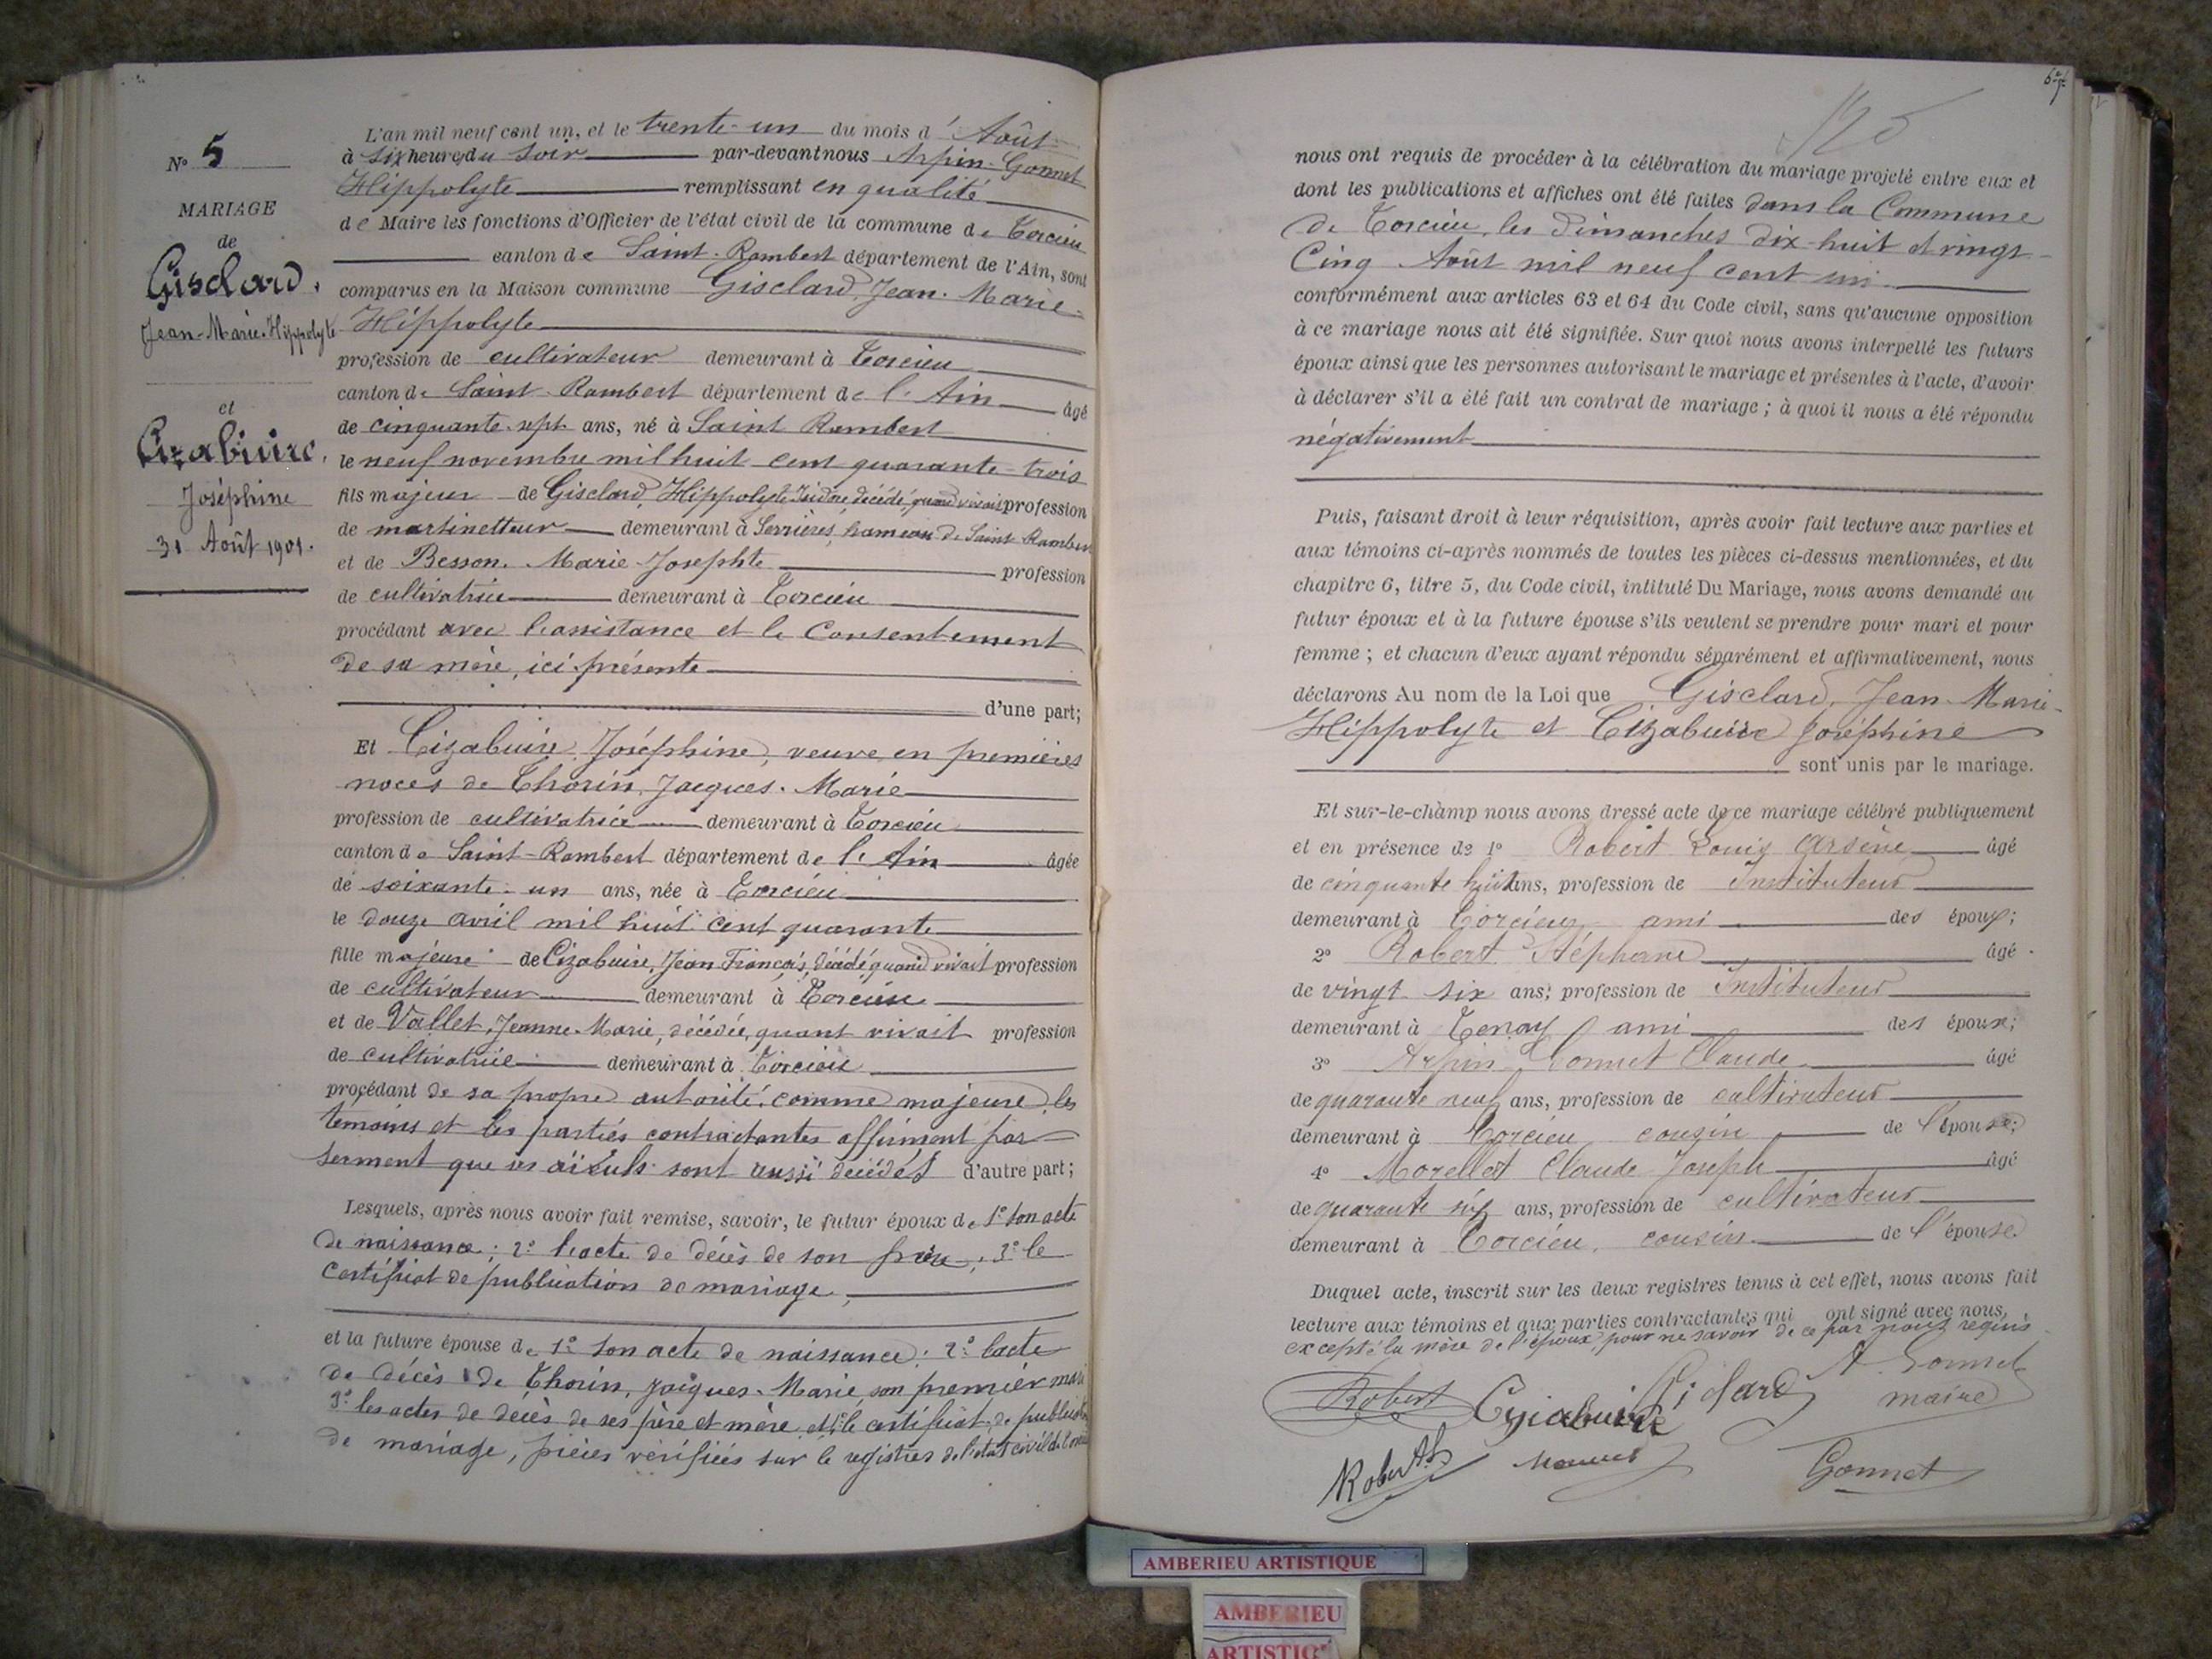 N° 5
MARIAGE
de
Gisclard,
Jean-Marie-Hippolyte
et
Cizabuire,
Joséphine
31 Août 1901.
L'an mil neuf cent un, et le trente-un du mois d' Août
à six heures du soir par-devant nous Arpin-Gonnet
Hippolyte remplissant en qualité
de Maire les fonctions d'Officier de l'état civil de la commune de Torcieu
canton de Saint-Rambert département de l'Ain, sont
comparus en la Maison commune Gisclard, Jean-Marie-
Hippolyte
profession de cultivateur demeurant à Torcieu
canton de Saint-Rambert département de l'Ain âgé
de cinquante-sept ans, né à Saint Rambert
le neuf novembre mil huit cent quarante-trois
fils majeur de Gisclard, Hippolyte Isidore, décédé, quand vivait profession
de martinetteur demeurant à Serrières, hameau de Saint Rambert
et de Besson, Marie-Josephte profession
de cultivatrice demeurant à Torcieu
procédant avec l'assistance et le consentement
de sa mère, ici présente
d'une part;
Et Cizabuire, Joséphine, veuve en premières
noces de Thorin, Jacques-Marie
profession de cultivatrice demeurant à Torcieu
canton de Saint-Rambert département de l'Ain âgée
de soixante-un ans, née à Torcieu
le douze avril mil huit cent quarante
fille majeure de Cizabuire, Jean François, décédé, quand vivait profession
de cultivateur demeurant à Torcieu
et de Vallet, Jeanne-Marie, décédée, quant vivait profession
de cultivatrice demeurant à Torcieu
procédant de sa propre autorité, comme majeure, les
témoins et les parties contractantes affirment par
serment que les aïeuls sont aussi décédés d'autre part;
Lesquels, après nous avoir fait remise, savoir, le futur époux de 1° son acte
de naissance; 2° l'acte de décès de son père; 3° le
certificat de publication de mariage,
et la future épouse de 1° son acte de naissance; 2° l'acte
de décès de Thorin, Jacques-Marie, son premier mari
3° les actes de décès de ses père et mère et 4° le certificat de publication
de mariage, pièces vérifiées sur le registres de l'état civil de Torcieu
67
125
nous ont requis de procéder à la célébration du mariage projeté entre eux et
dont les publications et affiches ont été faites dans la Commune
de Torcieu, les Dimanches dix-huit et vingt-
cinq Août mil neuf cent un
conformément aux articles 63 et 64 du Code civil, sans qu'aucune opposition
à ce mariage nous ait été signifiée. Sur quoi nous avons interpellé les futurs
époux ainsi que les personnes autorisant le mariage et présentes à l'acte, d'avoir
à déclarer s'il a été fait un contrat de mariage; à quoi il nous a été répondu
négativement
Puis, faisant droit à leur réquisition, après avoir fait lecture aux parties et
aux témoins ci-après nommés de toutes les pièces ci-dessus mentionnées, et du
chapitre 6, titre 5, du Code civil, intitulé Du Mariage, nous avons demandé au
futur époux et à la future épouse s'ils veulent se prendre pour mari et pour
femme; et chacun d'eux ayant répondu séparément et affirmativement, nous
déclarons Au nom de la Loi que Gisclard, Jean-Marie-
Hippolyte et Cizabuire Joséphine
sont unis par le mariage.
Et sur-le-champ nous avons dressé acte de ce mariage célébré publiquement
et en présence de 1° Robert Louis Arsène âgé
de cinquante huit ans, profession de Instituteur
demeurant à Torcieu, ami des époux;
2° Robert Stéphane âgé
de vingt-six ans, profession de Instituteur
demeurant à Tenay, ami des époux;
3° Arpin-Gonnet Claude âgé
de quarante neuf ans, profession de cultivateur
demeurant à Torcieu, cousin de l'épouse;
4° Morellet Claude Joseph âgé
de quarante six ans, profession de cultivateur
demeurant à Torcieu, cousin de l'épouse
Duquel acte, inscrit sur les deux registres tenus à cet effet, nous avons fait
lecture aux témoins et aux parties contractantes qui ont signé avec nous,
excepté la mère de l'époux, pour ne savoir de ce par nous requis
Robert Cizabuire Gisclard A. Gonnet
maire
Robert Gonnet
AMBERIEU ARTISTIQUE
AMBERIEU
ARTISTIQ